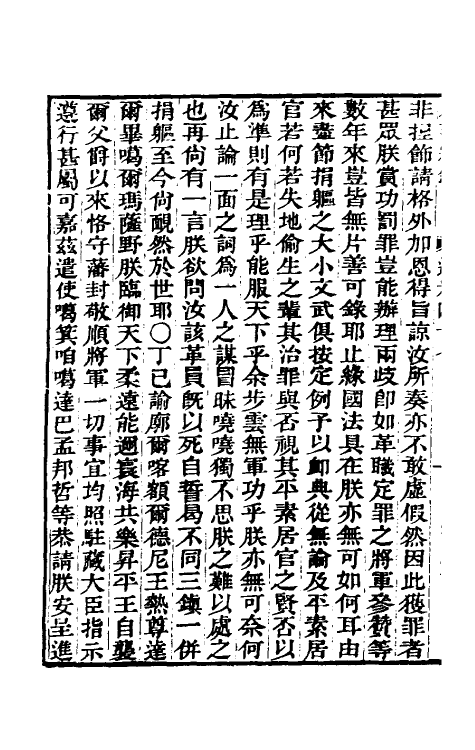 非捏節請格外加恩得旨諒汝所奏亦不敢虛假然因此獲罪者
甚眾朕賞功罰罪豈能辦理兩歧卽如革職定罪之將軍參贊等
數年來豈皆無片善可錄耶止緣國法具在朕亦無可如何耳由
來盡節捐軀之大小文武俱按定例予以卹典從無論及平素居
官若何若失地偷生之輩其治罪與否視其平素居官之賢否以
為準則有是理乎能服天下乎余步雲無軍功乎朕亦無可奈何
汝止論一面之詞為一人之謀冒昧嘵嘵獨不思朕之難以處之
也再尙有一言朕欲問汝該革員旣以死自誓曷不同三鎮一併
捐軀至今尙靦然於世耶〇丁巳諭廓爾喀額爾德尼王熱尊達
爾畢噶爾瑪薩野朕臨御天下柔遠能邇寰海共樂昇平王自襲
爾父爵以來恪守藩封敬順將軍一切事宜均照駐藏大臣指示
遵行甚屬可嘉茲遣使噶箕咱噶達巴孟邦哲等恭請朕安呈進